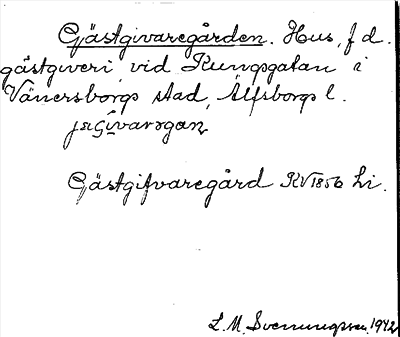 Gästgivaregården. Hus, f d.
gästgiveri vid Kungsgatan i
Vänersborgs stad, Älfsborgs l.
Gästgifvaregård KV1856 Li.
L. M. Svenungsson. 1942